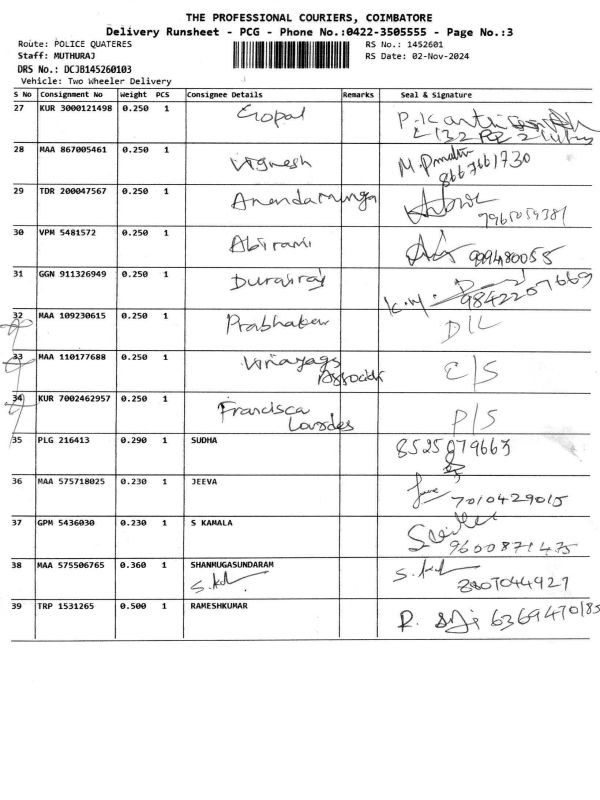 THE PROFESSIONAL COURIERS, COIMBATORE
Delivery Runsheet - PCG - Phone No.:0422-3505555 - Page No.:3
Route: POLICE QUATERES RS No.: 1452601
Staff: MUTHURAJ RS Date: 02-Nov-2024
DRS No.: DCJB145260103
Vehicle: Two Wheeler Delivery
S No Consignment No Weight PCS Consignee Details Remarks Seal & Signature
27 KUR 3000121498 0.250 1 Gopal
28 MAA 867005461 0.250 1 Vignesh
8667661730
29 TDR 200047567 0.250 1
30 VPM 5481572 0.250 1 Abirami
31 GGN 911326949 0.250 1 Durairaj
9842207669
32 MAA 109230615 0.250 1 Prabhakar D/L
33 MAA 110177688 0.250 1 C/S
34 KUR 7002462957 0.250 1 Francisca P/S
Lourdes
35 PLG 216413 0.290 1 SUDHA 8525079663
36 MAA 575718025 0.230 1 JEEVA
7010429015
37 GPM 5436030 0.230 1 S KAMALA
9600871475
38 MAA 575506765 0.360 1 SHANMUGASUNDARAM
39 TRP 1531265 0.500 1 RAMESHKUMAR 6369470185